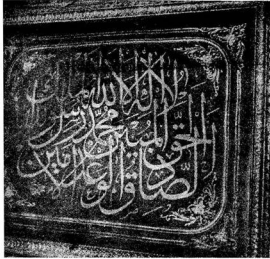 لا إله إلا الله الملك
الحق المبين محمد رسول الله
الصادق الوعد الأمين